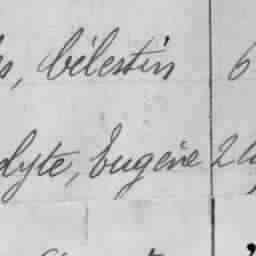 s, Célestin 6
olyte, Eugène 2